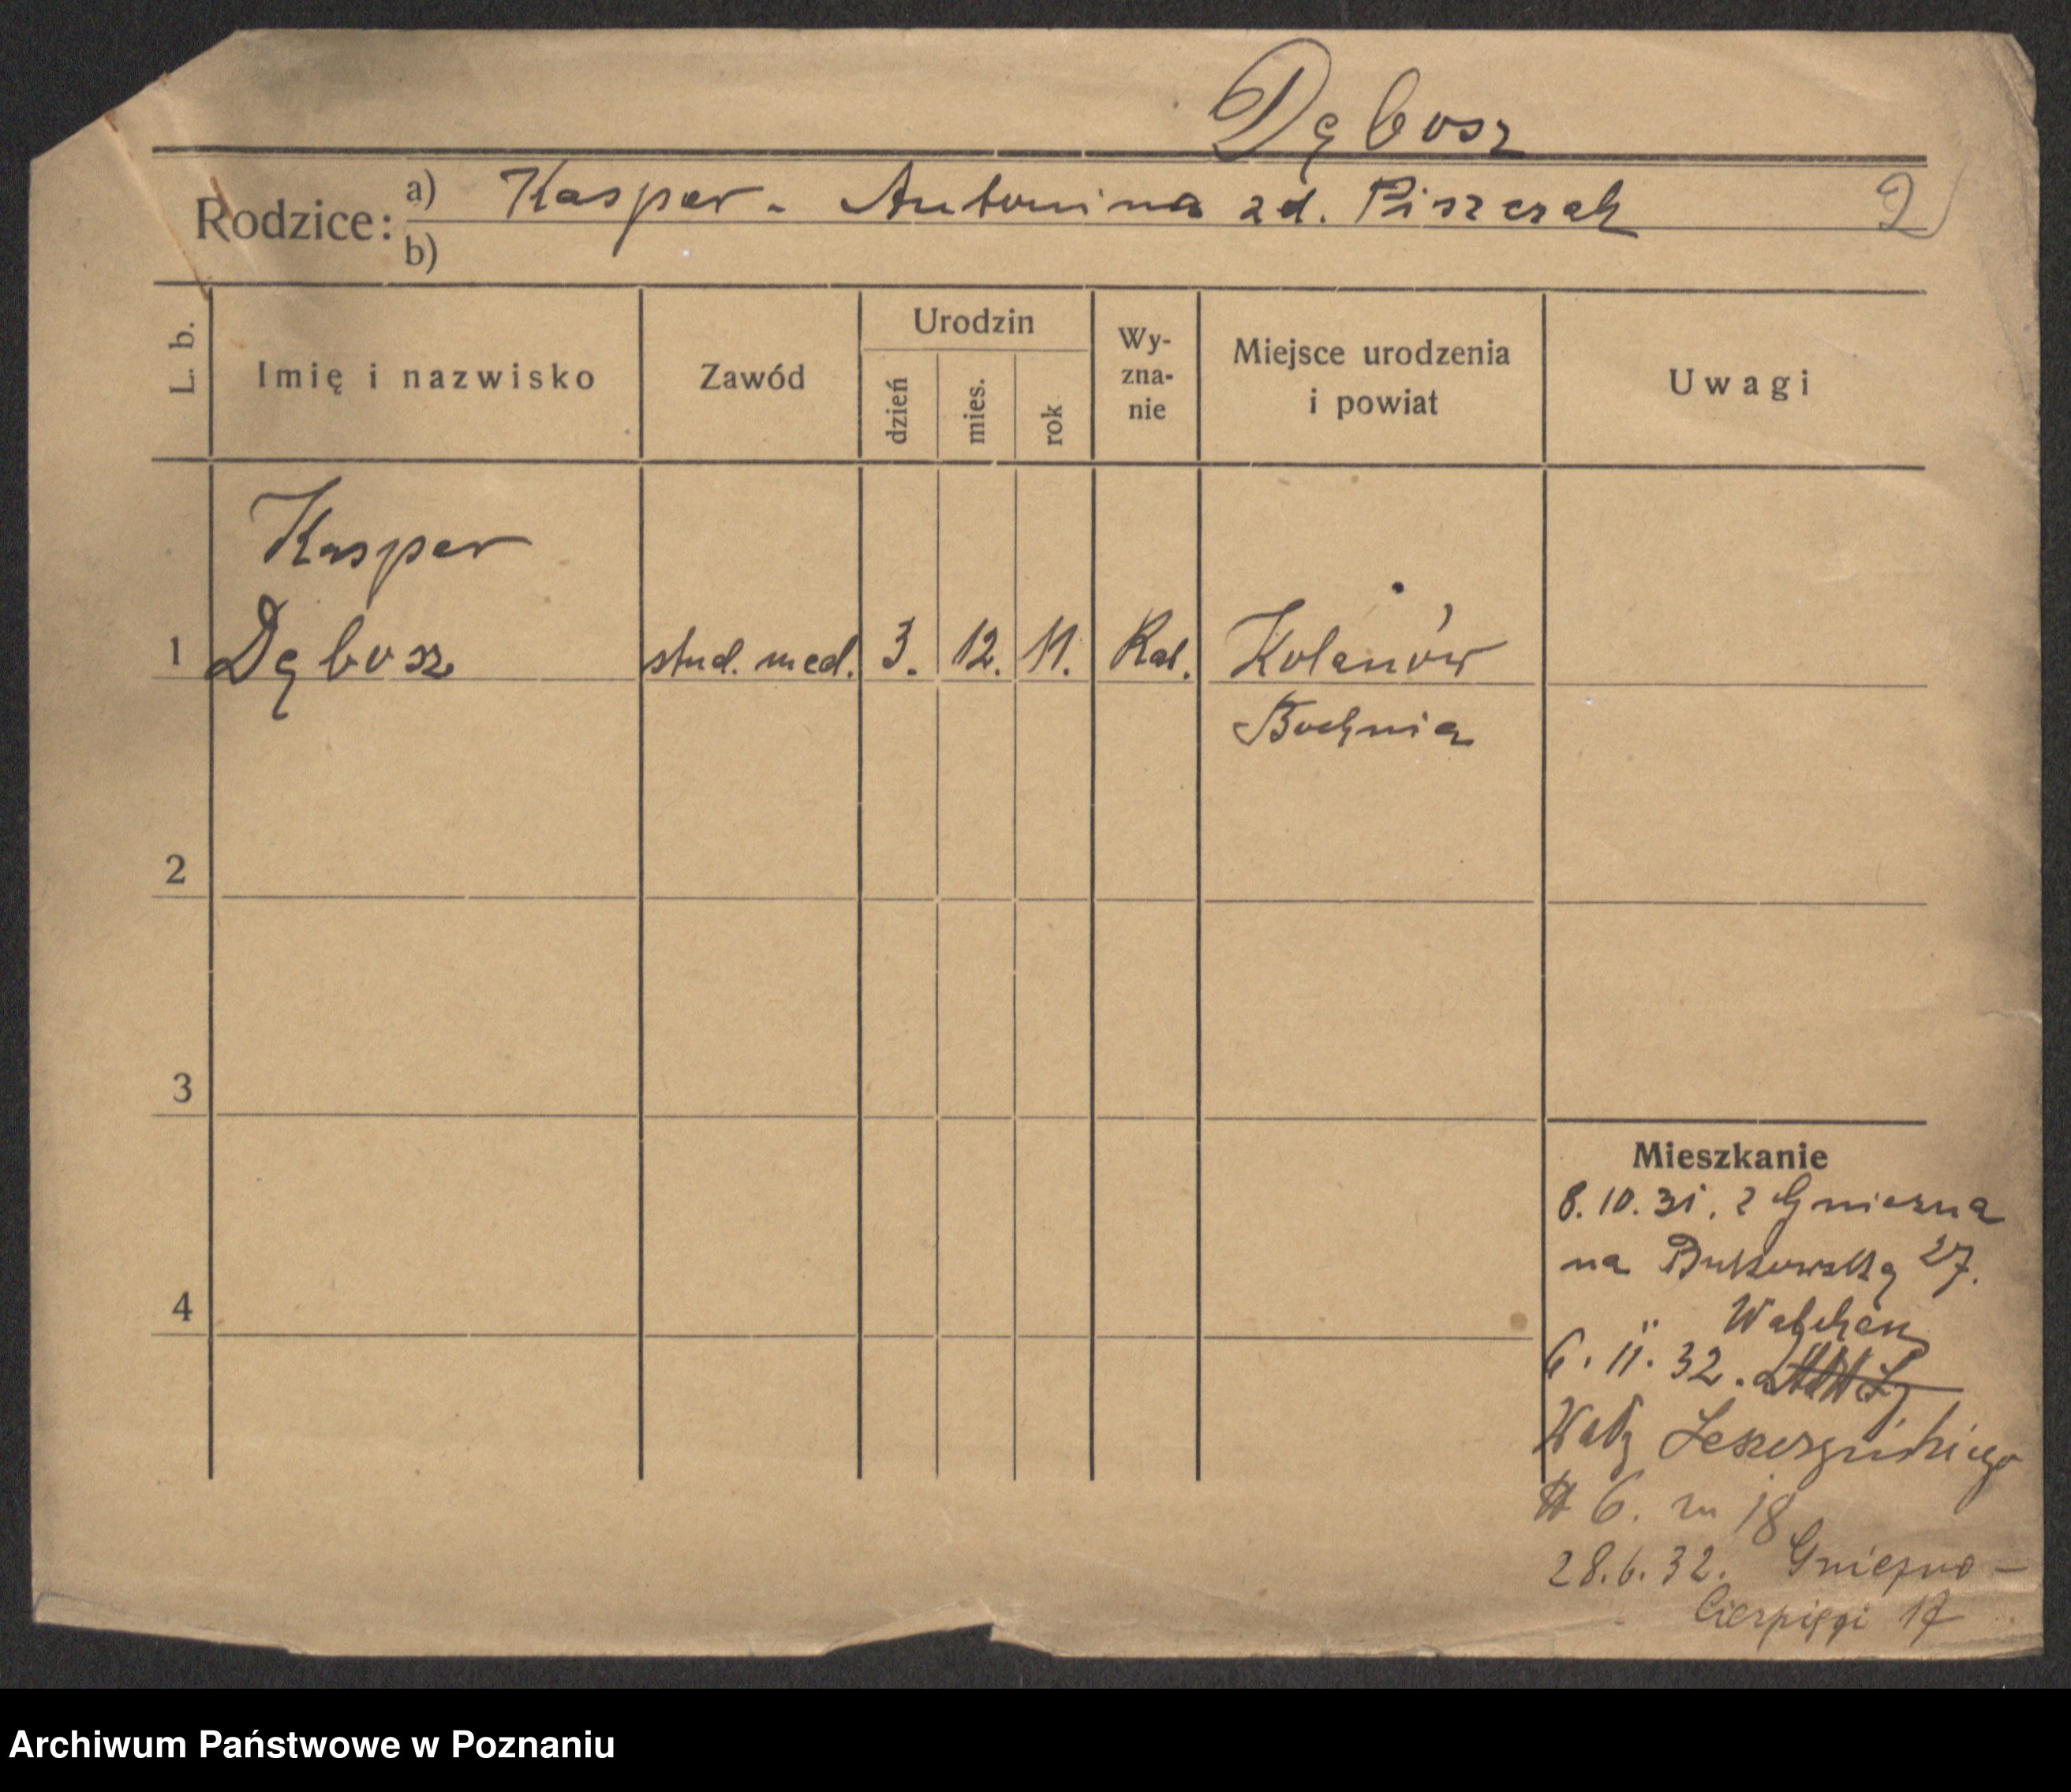 Dębosz
Rodzice: a) Kasper - Antonina zd. Piszczek 2
b)
L. b. Imię i nazwisko Zawód Urodzin dzień mies. rok Wy-zna-nie Miejsce urodzenia i powiat Uwagi
Kasper
1 Dębosz stud. med. 3. 12. 11. Kat. Kolanów
Bochnia
2
3
Mieszkanie
8.10.31. z Gniezna
na Bukowską 27.
4
6. 11. 32.
Wały Leszczyńskiego
6. m 18
28.6.32. Gniezno -
Cierpięgi 17
Archiwum Państwowe w Poznaniu